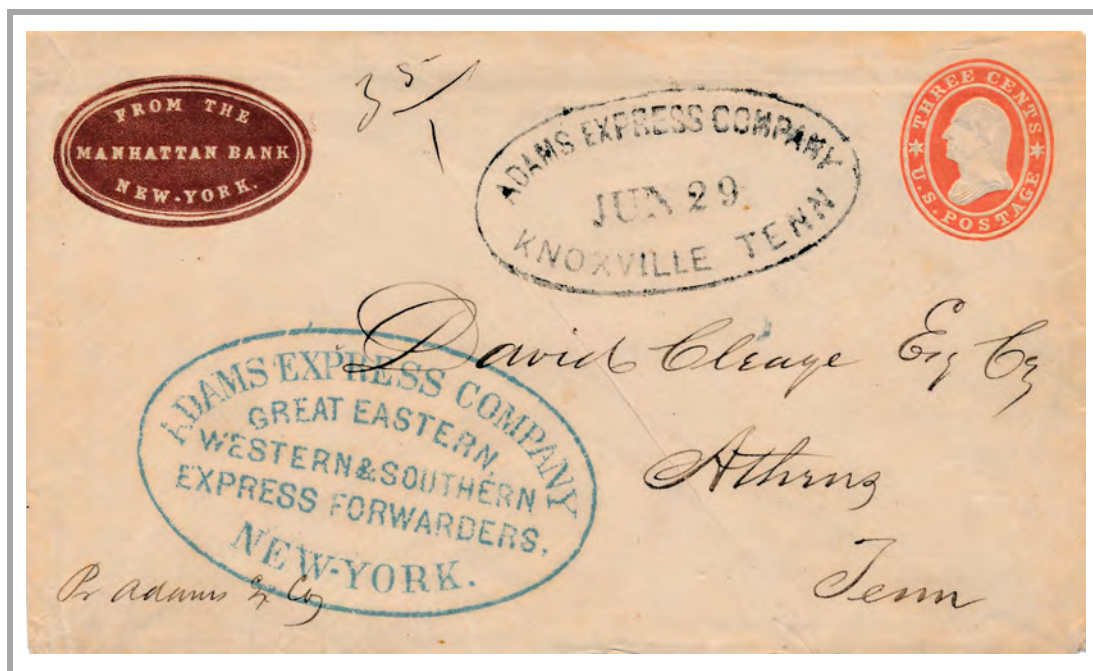 FROM THE
MANHATTAN BANK
NEW-YORK.
35/1
ADAMS EXPRESS COMPANY
JUN 29
KNOXVILLE TENN
THREE CENTS
U.S. POSTAGE
David Cleage Esq
Athens
Tenn
ADAMS EXPRESS COMPANY
GREAT EASTERN,
WESTERN & SOUTHERN
EXPRESS FORWARDERS,
NEW-YORK.
Pr Adams Ex Co